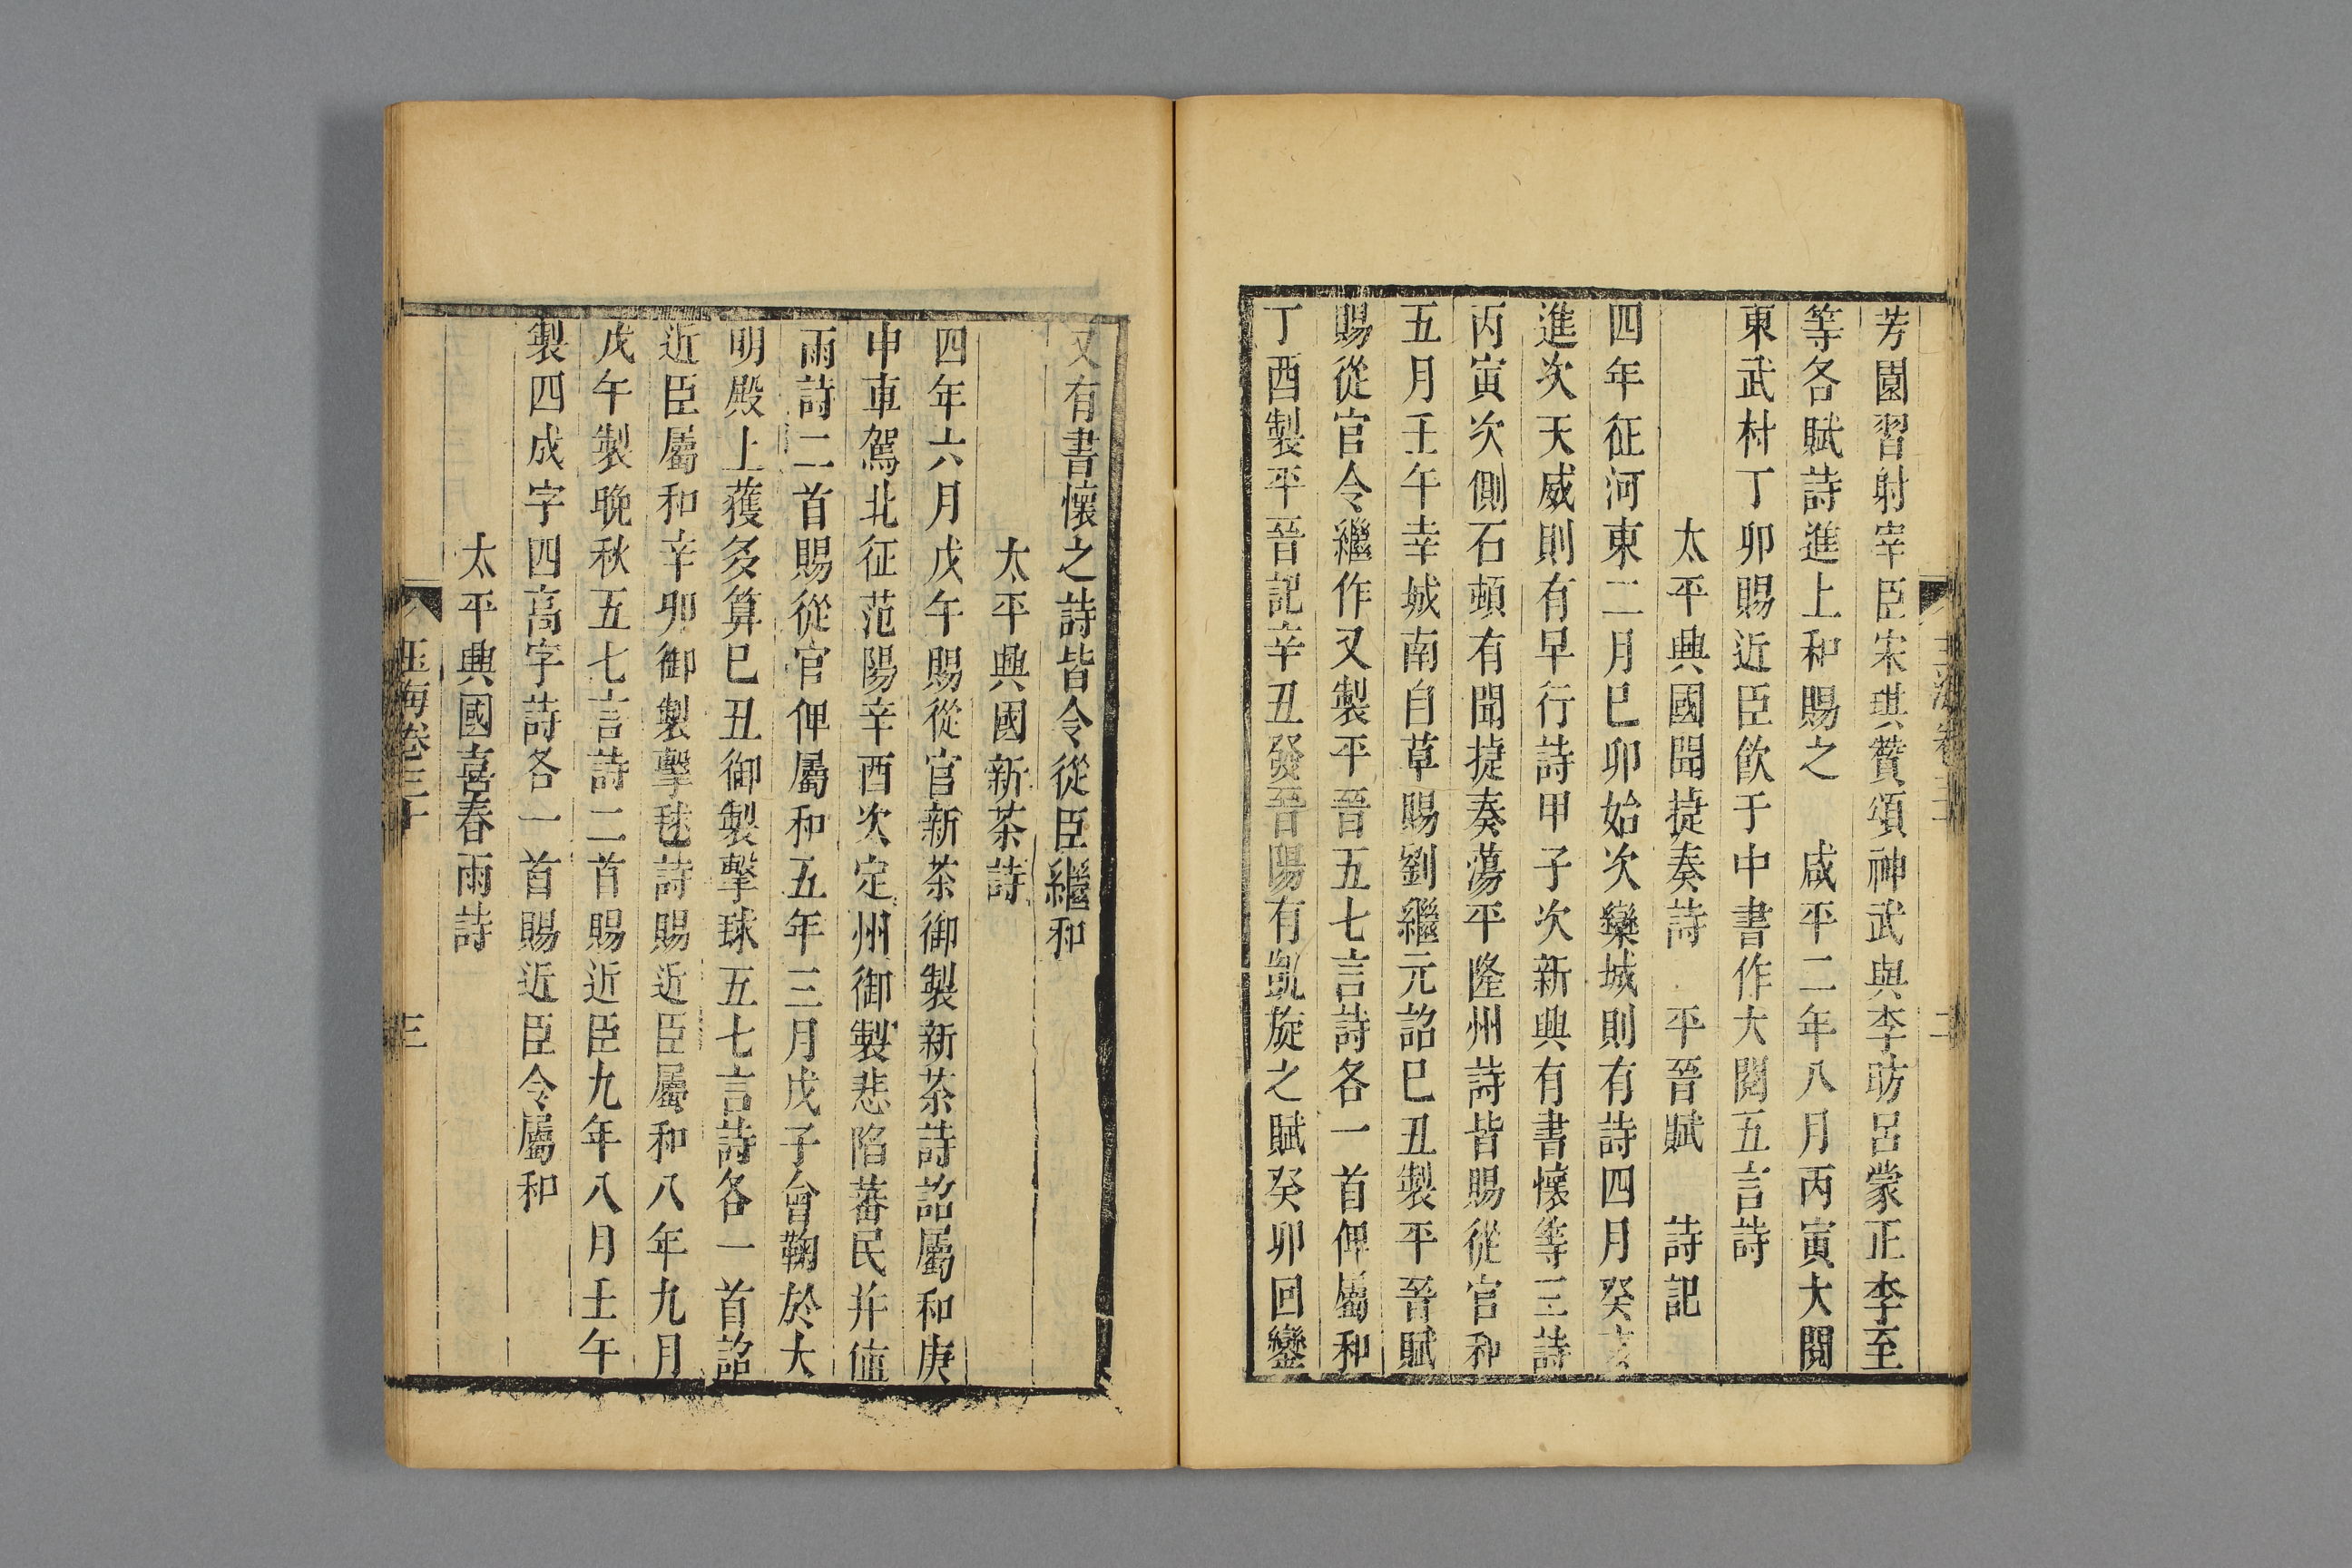 芳園習射宰臣宋琪贊頌神武與李昉呂蒙正李至
等各賦詩進上和賜之　咸平二年八月丙寅大閱
東武村丁卯賜近臣飲于中書作大閱五言詩
太平興國聞捷奏詩　平晉賦　詩記
四年征河東二月巳卯始次欒城則有詩四月癸亥
進次天威則有早行詩甲子次新興有書懷等三詩
丙寅次側石頓有聞捷奏蕩平隆州詩皆賜從官和
五月壬午幸城南自草賜劉繼元詔巳丑製平晉賦
賜從官令繼作又製平晉五七言詩各一首俾屬和
丁酉製平晉記辛丑發晉陽有凱旋之賦癸卯回鑾
又有書懷之詩皆令從臣繼和
太平興國新茶詩
四年六月戊午賜從官新茶御製新茶詩詔屬和庚
申車駕北征范陽辛酉次定州御製悲陷蕃民并值
雨詩二首賜從官俾屬和五年三月戊子會鞠於大
明殿上獲多算巳丑御製擊球五七言詩各一首詔
近臣屬和辛卯御製擊毬詩賜近臣屬和八年九月
戊午製晚秋五七言詩二首賜近臣九年八月壬午
製四成字四高字詩各一首賜近臣令屬和
太平興國喜春雨詩
玉海卷三十
三